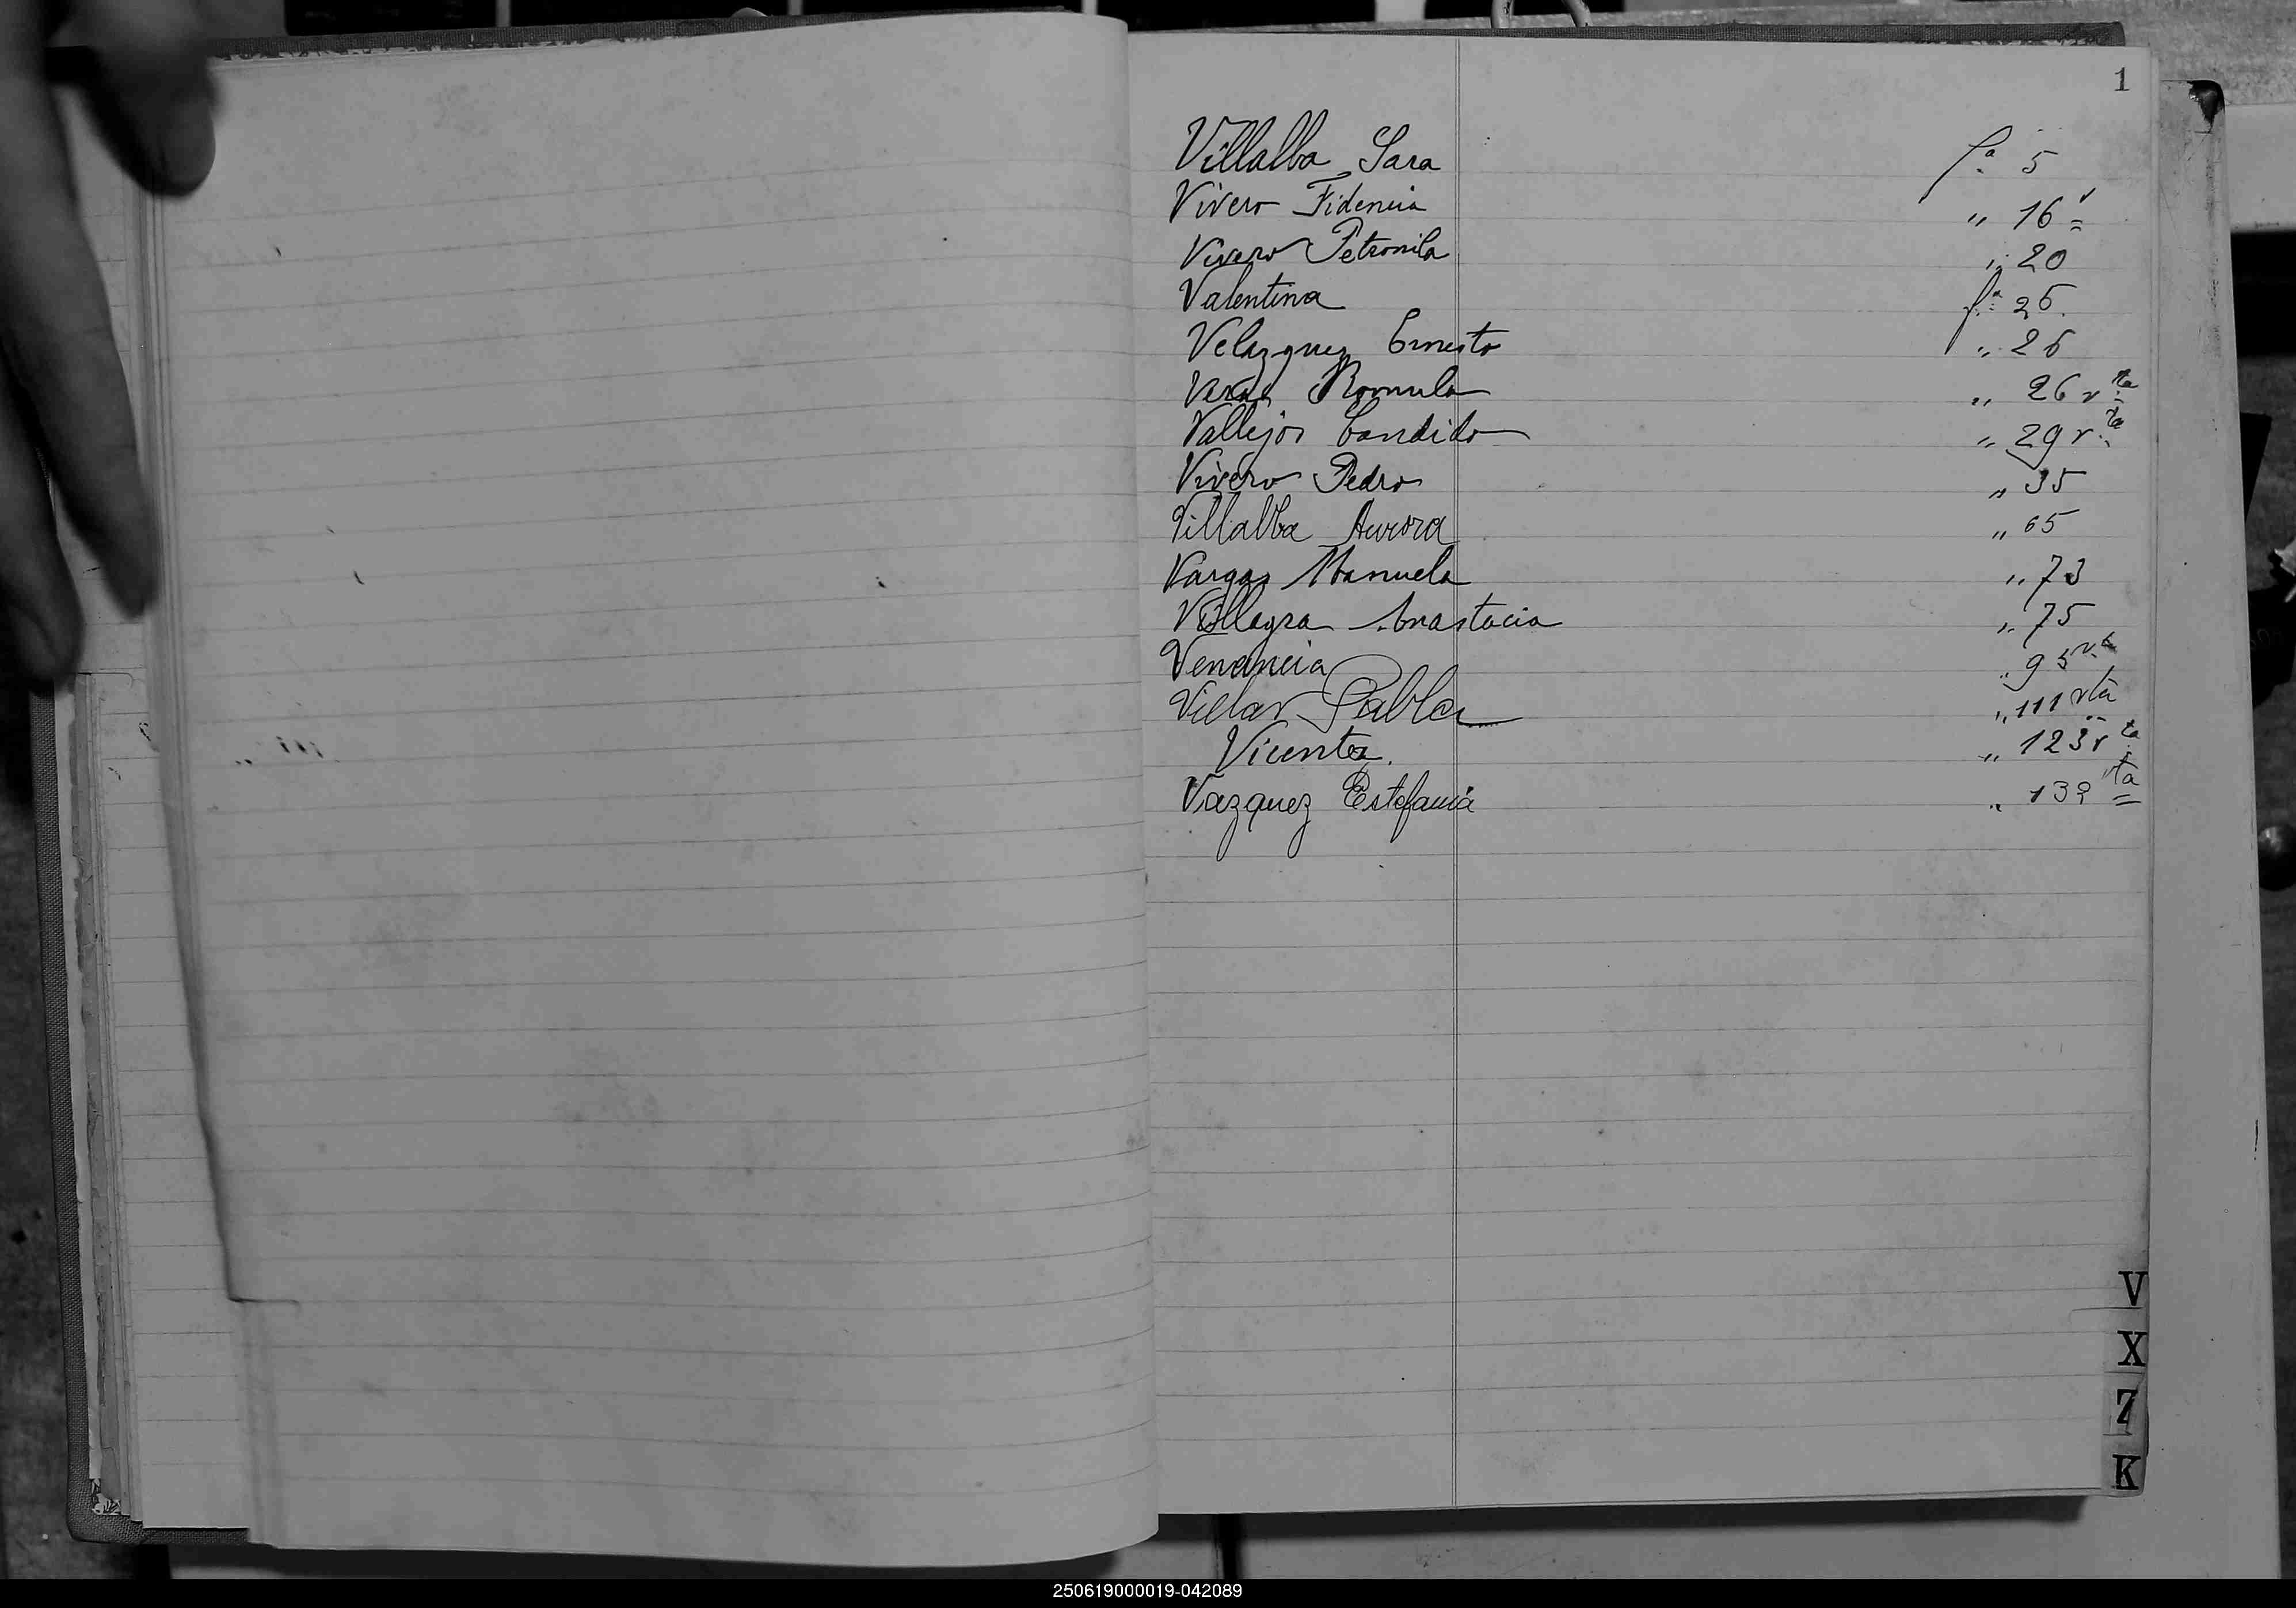 1
Villalba Sara fª 5
Vivero Fidencia " 16 v
Vivero Petronila " 20
Valentina fª 25.
Velazquez Ernesto " 26
Romula " 26 vta
Vallejos Candido " 29 vta
Vivero Pedro " 35
Villalba Aurora " 65
Vargas Manuela " 73
Villagra Anastacia " 75
Venancia " 95 vta
Villar Pabla " 111 vta
Vicenta. " 123 vta
Vazquez Estefania " vta
V
X
Z
K
250619000019-042089